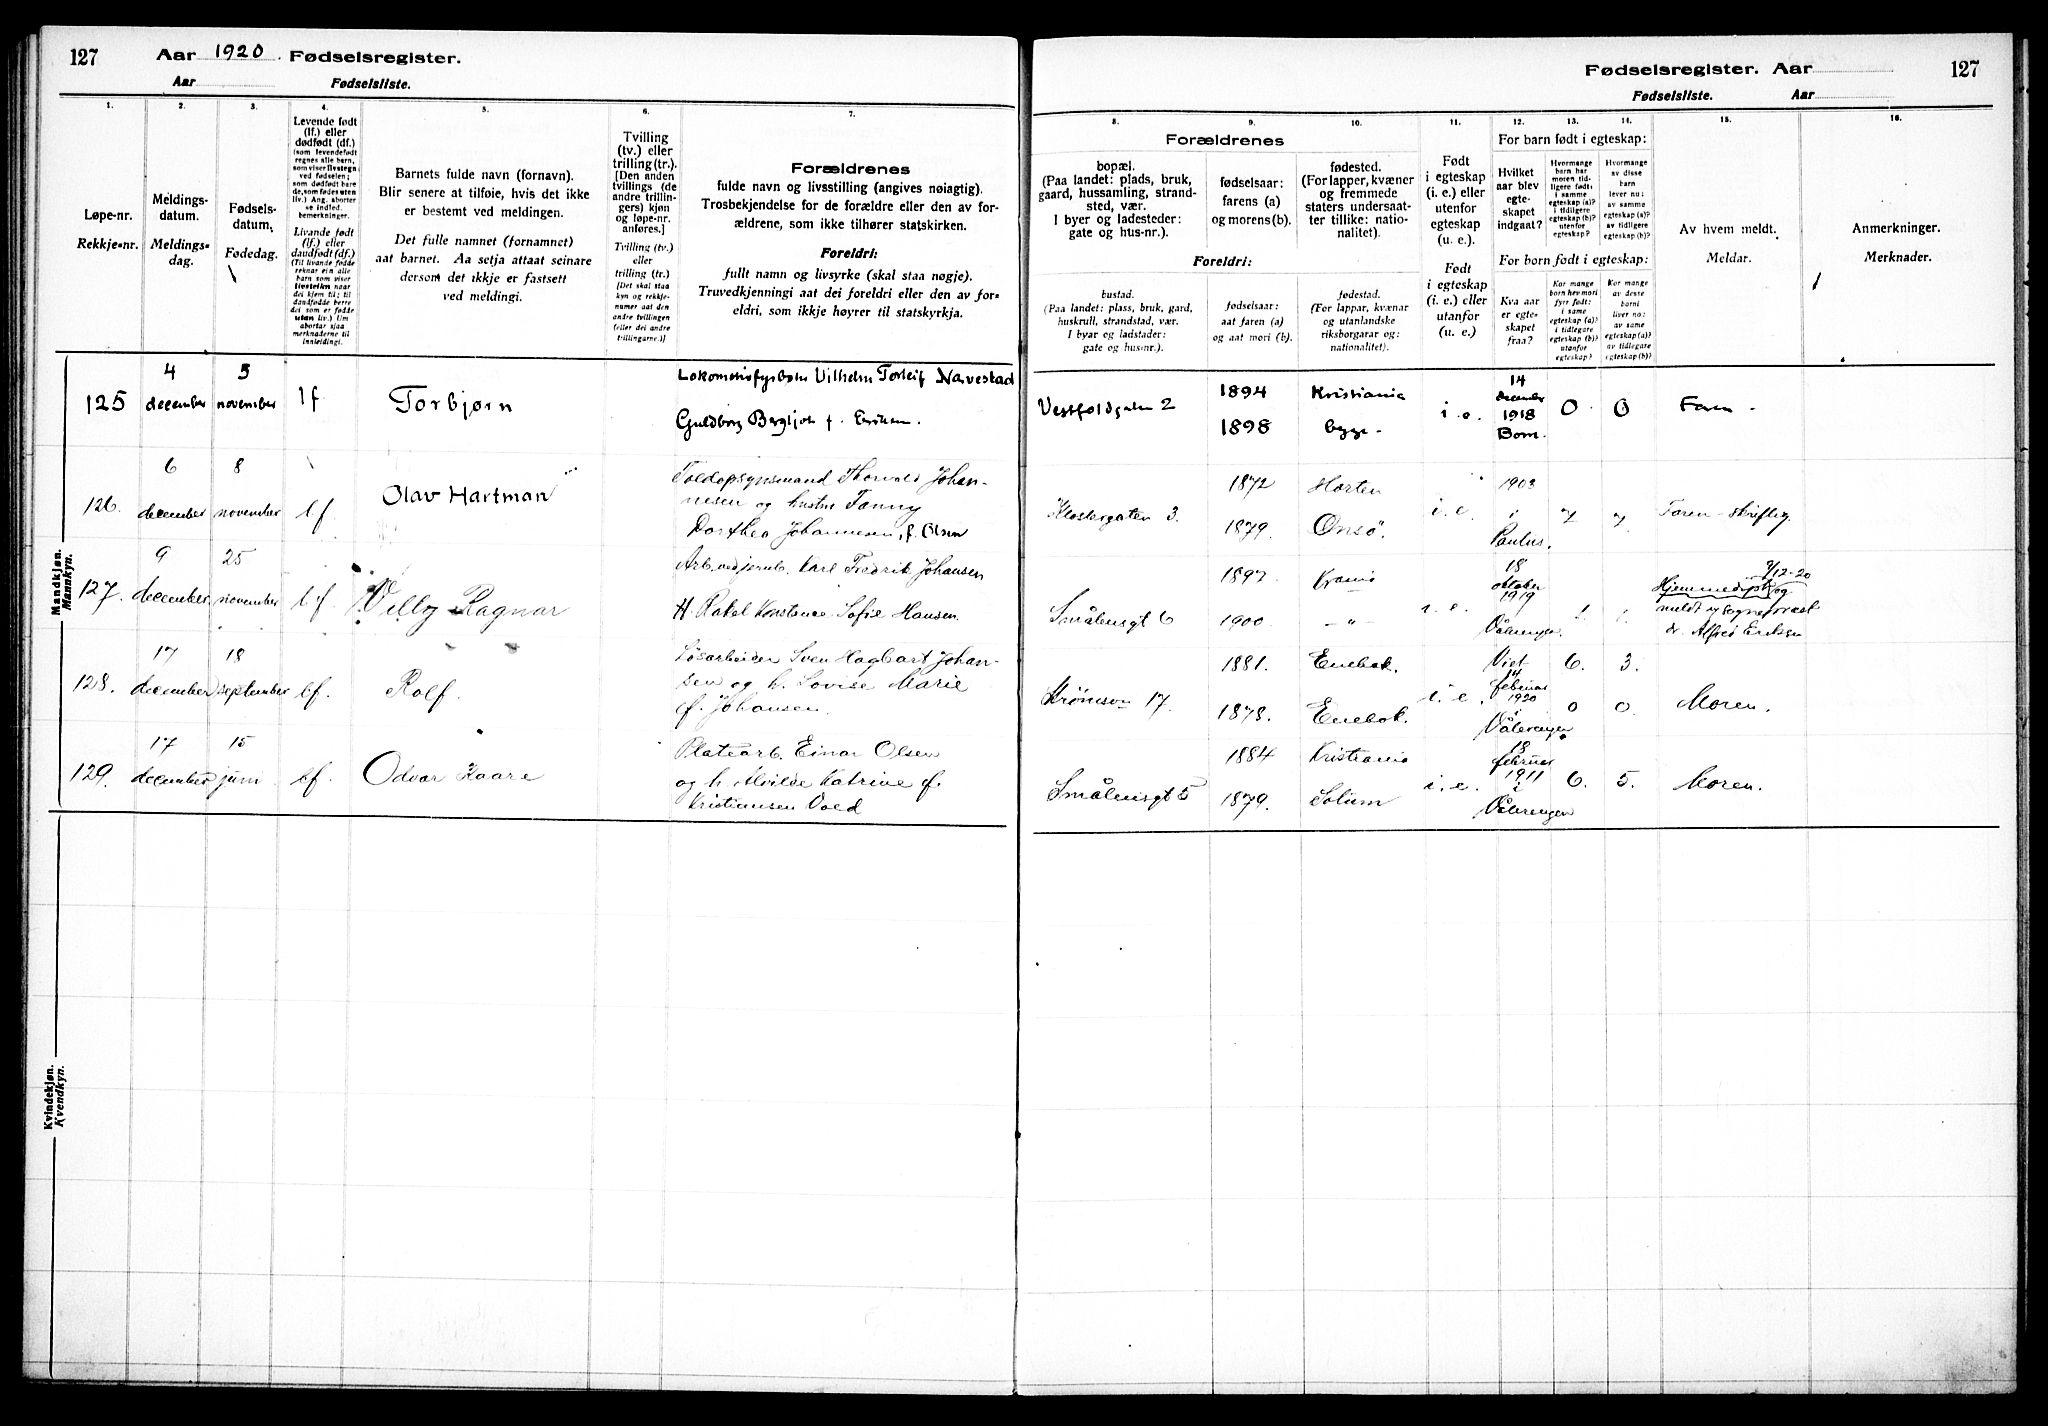 127 Aar 1920. Fødselsregister.
Aar Fødselsliste.
Fødselsregister. Aar 127
Fødselsliste. Aar
1. 2. 3. 4. 5. 6. 7.
Løpe-nr.
Rekkje-nr.
Meldings-
datum.
Meldings-
dag.
Fødsels-
datum.
Fødedag.
Levende født
(lf.) eller
dødfødt (df.)
(som levendefødt
regnes alle barn,
som viser livstegn
ved fødselen;
som dødfødt bare
de, som fødes uten
liv.) Ang. aborter
se indled.
bemerkninger.
Livande født
(lf.) eller
daudfødt (df.)
(Til livande fødde
reknar ein alle
born som viser
livsteikn naar
dei kjem til; til
daudfødde berre
dei som er fødde
utan liv.) Um
abortar sjaa
merknaderne til
innleidingi.
Barnets fulde navn (fornavn).
Blir senere at tilføie, hvis det ikke
er bestemt ved meldingen.
Det fulle namnet (fornamnet)
aat barnet. Aa setja attaat seinare
dersom det ikkje er fastsett
ved meldingi.
Tvilling
(tv.) eller
trilling (tr.).
[Den anden
tvillings (de
andre trillin-
gers) kjøn
og løpe-nr.
anføres.]
Tvilling (tv.)
eller
trilling (tr.)
[Det skal staa
kyn og rekkje-
numer aat den
andre tvillingen
(eller dei andre
trillingarne.)]
Forældrenes
fulde navn og livsstilling (angives nøiagtig).
Trosbekjendelse for de forældre eller den av for-
ældrene, som ikke tilhører statskirken.
Foreldri:
fullt namn og livsyrke (skal staa nøgje).
Truvedkjenningi aat dei foreldri eller den av for-
eldri, som ikkje høyrer til statskyrkja.
8. 9. 10. 11. 12. 13. 14. 15. 16.
Forældrenes
bopæl.
(Paa landet: plads, bruk,
gaard, hussamling, strand-
sted, vær.
I byer og ladesteder:
gate og hus-nr.).
Foreldri:
bustad.
(Paa landet: plass, bruk, gard,
huskrull, strandstad, vær.
I byar og ladstader:
gate og hus-nr.).
fødselsaar:
farens (a)
og morens (b).
fødselsaar:
aat faren (a)
og aat mori (b).
fødested.
(For lapper, kvæner
og fremmede
staters undersaat-
ter tillike: natio-
nalitet).
fødestad.
(For lappar, kvænar
og utanlandske
riksborgarar og:
nationalitet).
Født
i egteskap
(i. e.) eller
utenfor
egteskap
(u. e.).
Født
i egteskap
(i. e.) eller
utanfor
(u. e.).
For barn født i egteskap:
Hvilket
aar blev
egte-
skapet
indgaat?
Hvormange
barn har
moren tid-
ligere født:
i samme
egteskap (a)?
i tidligere
egteskap (b)?
utenfor
egteskap?
Hvormange
av disse
barn
lever nu:
av samme
egteskap (a)?
av tidligere
egteskap (b)?
For born født i egteskap:
Kva aar
er egte-
skapet
fraa?
Kor mange
born hev mori
fyrr født:
i same
egteskap (a)?
i tidlegare
egteskap (b)?
utanfor
egteskap?
Kor mange
av desse
borni
liver no:
av same
egteskap (a)?
av tidlegare
egteskap (b)?
Av hvem meldt.
Meldar.
Anmerkninger.
Merknader.
Mandkjøn.
Mannkyn.
125 4 december 5 november lf Torbjørn Lokomotivfyrbøter Vilhelm Torleif Narvestad
Guldborg Bergljot f. Eriksen.
Vestfoldgaten 2 1894 1898 Kristiania bygge. i. e. 14 december 1918 0 0 Faren.
126. 6 december 8 november lf Olav Hartman Toldopsynsmand Thorvald Johan-
nesen og hustru Fanny
Dorthea Johannesen, f. Olsen
Klostergaten 3. 1872 1879. Horten Onsö. i. e. 1903 i Paulus. 7 7 Faren - skriftlig.
127. 9 december 25 november lf Villy Ragnar Arb. ved jernb. Karl Fredrik Johansen
H. Rakel Konstance Sofie Hansen.
Smålensgt 6 1897 1900. Krania -"- i. e. 18 oktober 1919 Vålerengen 7/12-20
Hjemmedøpt og
meldt av sogneprest
dr. Alfred Eriksen
128. 17 december 18 september lf. Rolf. Løsarbeider Sven Hagbart Johan-
sen og h. Lovise Marie
f. Johansen.
Strömsvn 17. 1881. 1878. Enebak. Enebak. i. e. Viet 14 februar 1920 i Vålerengen 6. 0 3. 0. Moren.
129. 17 december 15 juni lf. Odvar Kaare Platearb. Einar Olsen
og h. Alvilde Katrine f.
Kristiansen Vold
Smålensgt 5 1884 1879. Kristiania Solum i. e. 18 februar 1911 i Vålerengen 6. 5. Moren.
Kvindekjøn.
Kvendkyn.